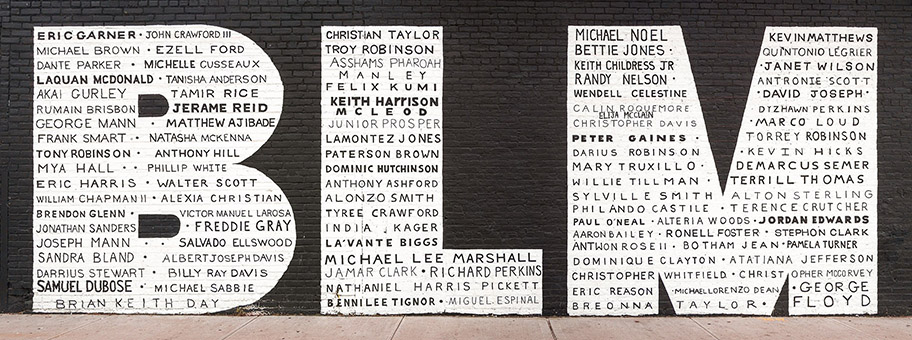 BLM
ERIC GARNER · JOHN CRAWFORD III
MICHAEL BROWN · EZELL FORD
DANTE PARKER · MICHELLE CUSSEAUX
LAQUAN MCDONALD · TANISHA ANDERSON
AKAI GURLEY · TAMIR RICE
RUMAIN BRISBON · JERAME REID
GEORGE MANN · MATTHEW AJIBADE
FRANK SMART · NATASHA MCKENNA
TONY ROBINSON · ANTHONY HILL
MYA HALL · PHILLIP WHITE
ERIC HARRIS · WALTER SCOTT
WILLIAM CHAPMAN II · ALEXIA CHRISTIAN
BRENDON GLENN · VICTOR MANUEL LAROSA
JONATHAN SANDERS · FREDDIE GRAY
JOSEPH MANN · SALVADO ELLSWOOD
SANDRA BLAND · ALBERT JOSEPH DAVIS
DARRIUS STEWART · BILLY RAY DAVIS
SAMUEL DUBOSE · MICHAEL SABBIE
BRIAN KEITH DAY
CHRISTIAN TAYLOR
TROY ROBINSON
ASSHAMS PHAROAH
MANLEY
FELIX KUMI
KEITH HARRISON
MCLEOD
JUNIOR PROSPER
LAMONTEZ JONES
PATERSON BROWN
DOMINIC HUTCHINSON
ANTHONY ASHFORD
ALONZO SMITH
TYREE CRAWFORD
INDIA KAGER
LA'VANTE BIGGS
MICHAEL LEE MARSHALL
JAMAR CLARK · RICHARD PERKINS
NATHANIEL HARRIS PICKETT
BENNI LEE TIGNOR · MIGUEL ESPINAL
MICHAEL NOEL · KEVIN MATTHEWS
BETTIE JONES · QUINTONIO LÉGRIER
KEITH CHILDRESS JR · JANET WILSON
RANDY NELSON · ANTRONIE SCOTT
WENDELL CELESTINE · DAVID JOSEPH ·
CALIN ROQUEMORE · DYZHAWN PERKINS
ELIJA MCCLAIN
CHRISTOPHER DAVIS · MARCO LOUD
PETER GAINES · TORREY ROBINSON
DARIUS ROBINSON · KEVIN HICKS
MARY TRUXILLO · DEMARCUS SEMER
WILLIE TILLMAN · TERRILL THOMAS
SYLVILLE SMITH · ALTON STERLING
PHILANDO CASTILE · TERENCE CRUTCHER
PAUL O'NEAL · ALTERIA WOODS · JORDAN EDWARDS
AARON BAILEY · RONELL FOSTER · STEPHON CLARK
ANTWON ROSE II · BOTHAM JEAN · PAMELA TURNER
DOMINIQUE CLAYTON · ATATIANA JEFFERSON
CHRISTOPHER WHITFIELD · CHRISTOPHER MCCORVEY
ERIC REASON · MICHAEL LORENZO DEAN · GEORGE
BREONNA TAYLOR · FLOYD